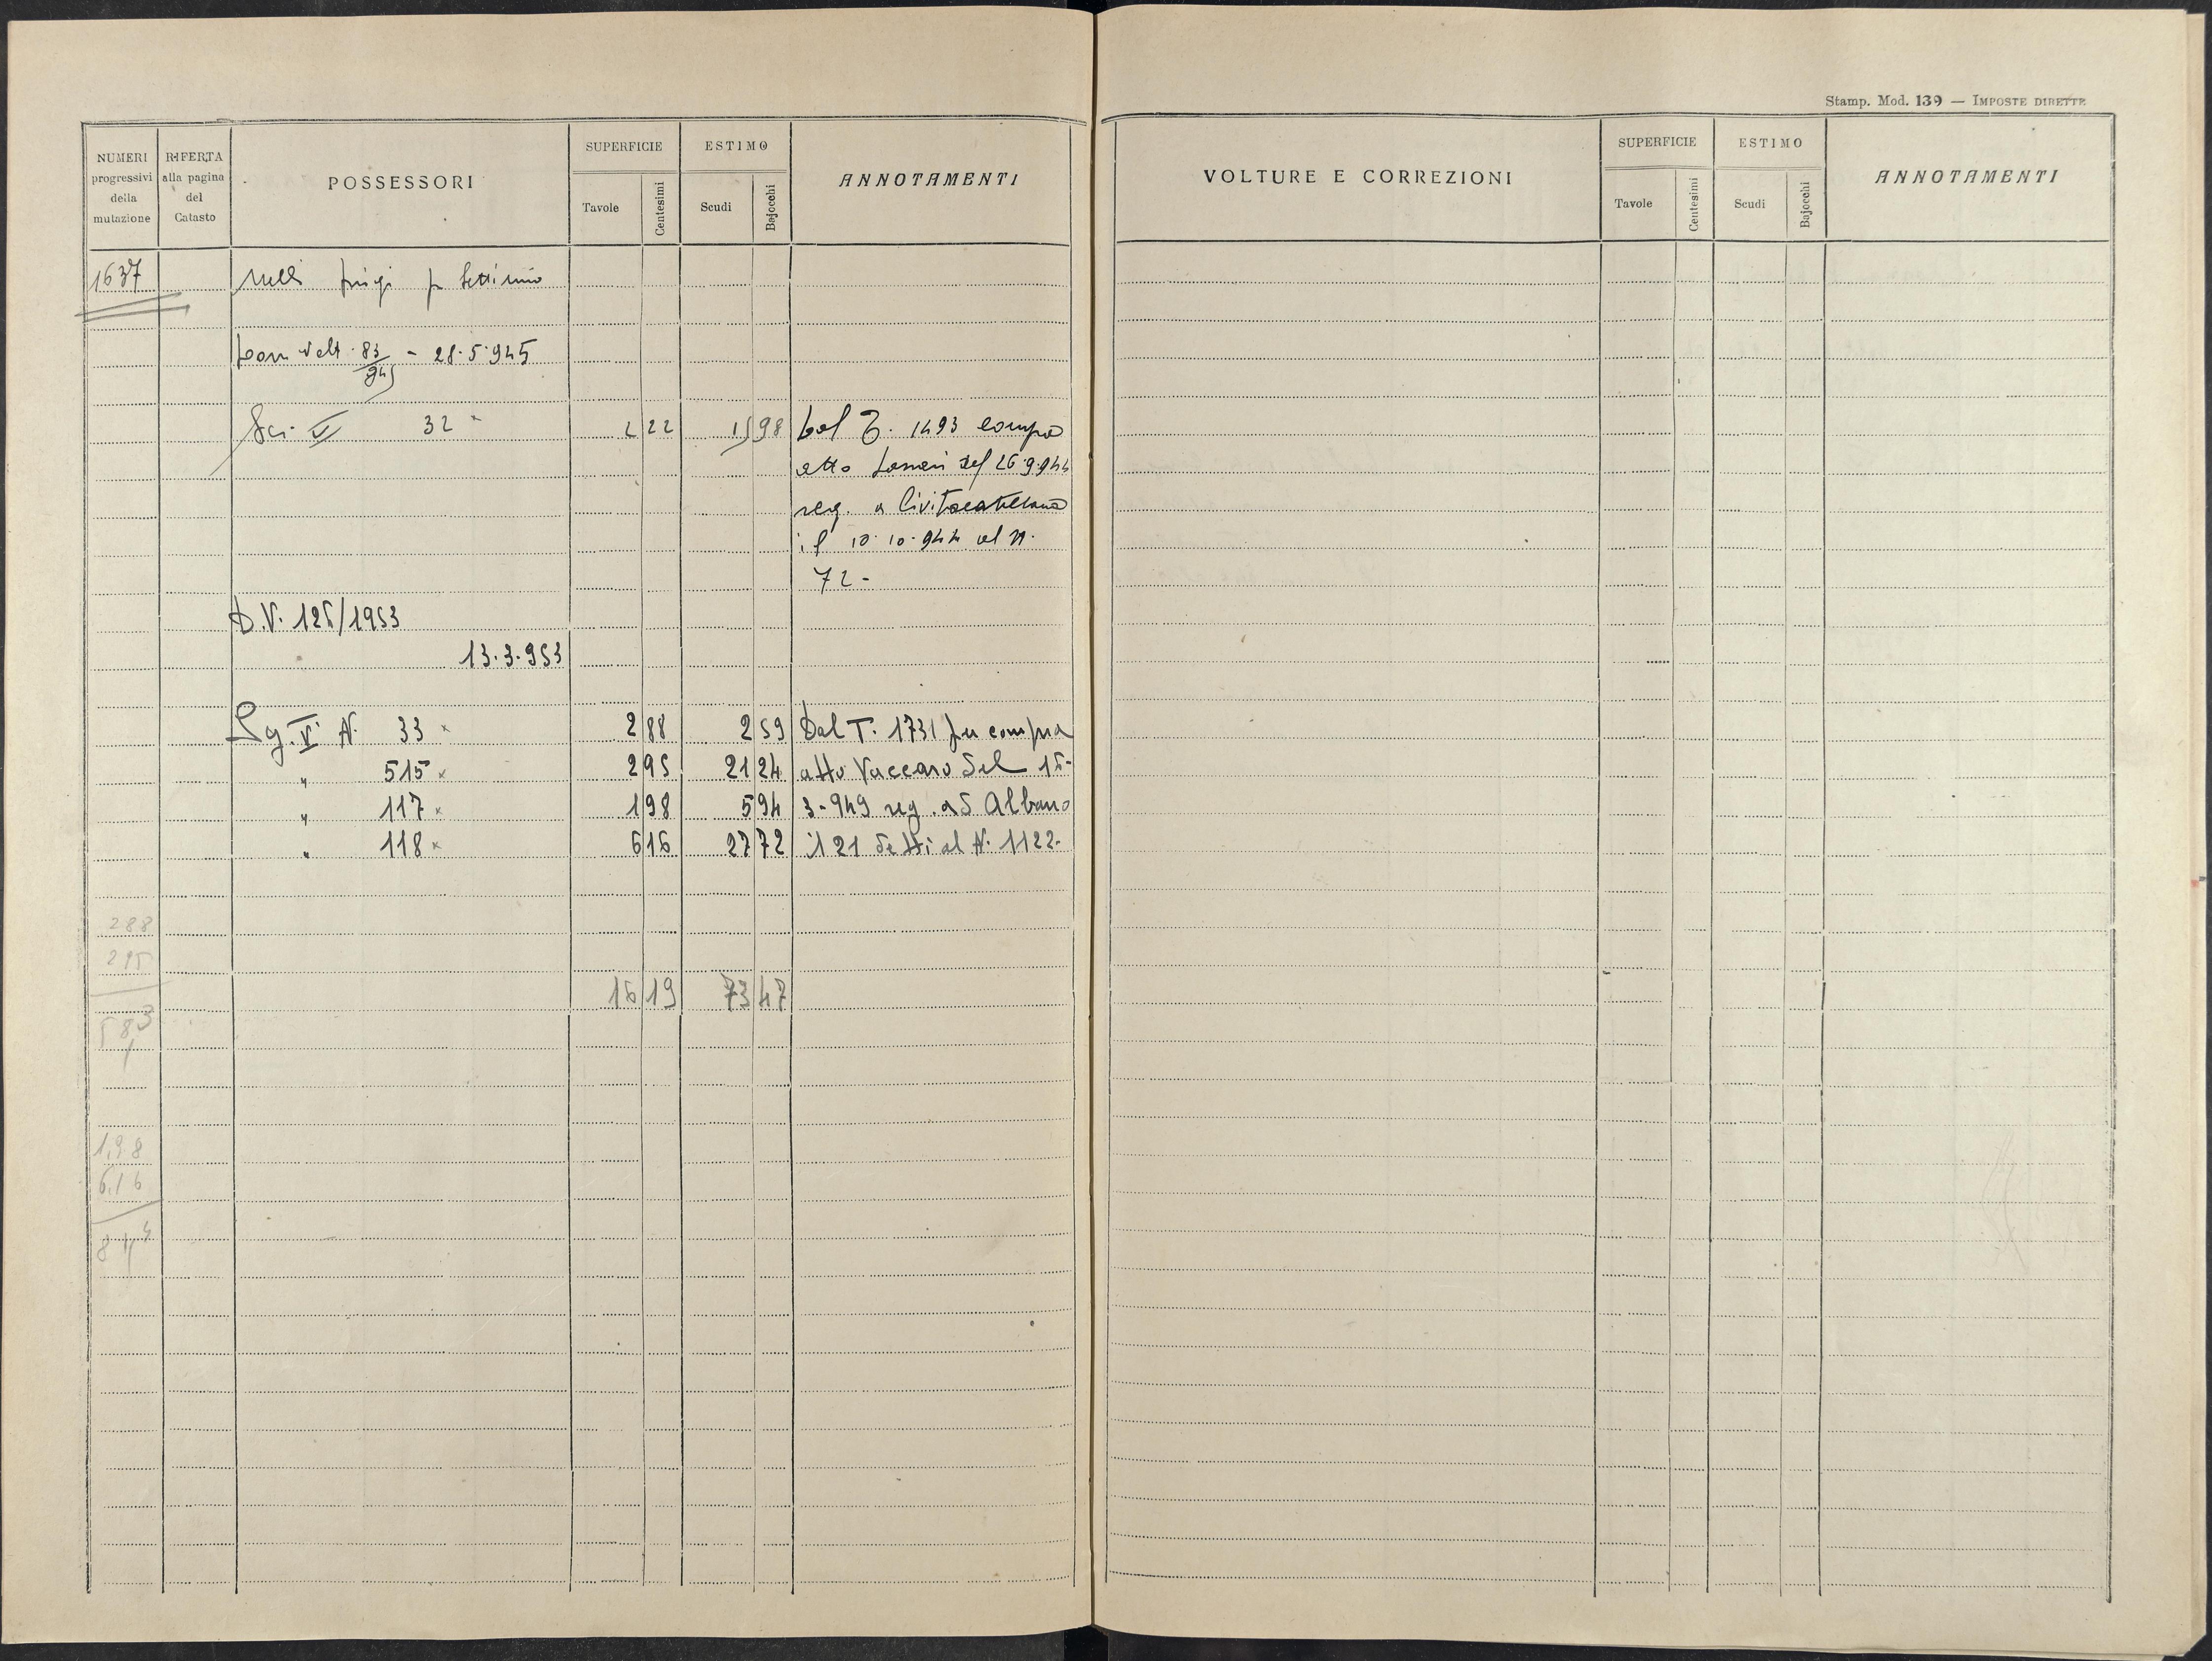 Stamp. Mod. 139 — IMPOSTE DIRETTE
NUMERI progressivi della mutazione
RIFERTA alla pagina del Catasto
POSSESSORI
SUPERFICIE
Tavole
Centesimi
ESTIMO
Scudi
Bajocchi
ANNOTAMENTI
VOLTURE E CORREZIONI
SUPERFICIE
Tavole
Centesimi
ESTIMO
Scudi
Bajocchi
ANNOTAMENTI
1637 Settimio
83/945 - 28.5.945
32 22 15 98 Dal T. 1493 compra
atto del 26.9.944
reg. a Civitacastellana
il 10.10.944 al N.
72 -
D.V. 126/1953
13.3.953
Sg. V N. 33 2 88 2 59 Dal T. 1731 per compra
" 515 2 95 21 24 atto Vaccaro del 16-
" 117 1 98 5 94 3-949 reg. a Albano
" 118 6 16 27 72 il 21 detti al N. 1122.
288
295
16 19 73 47
583
1.98
6.16